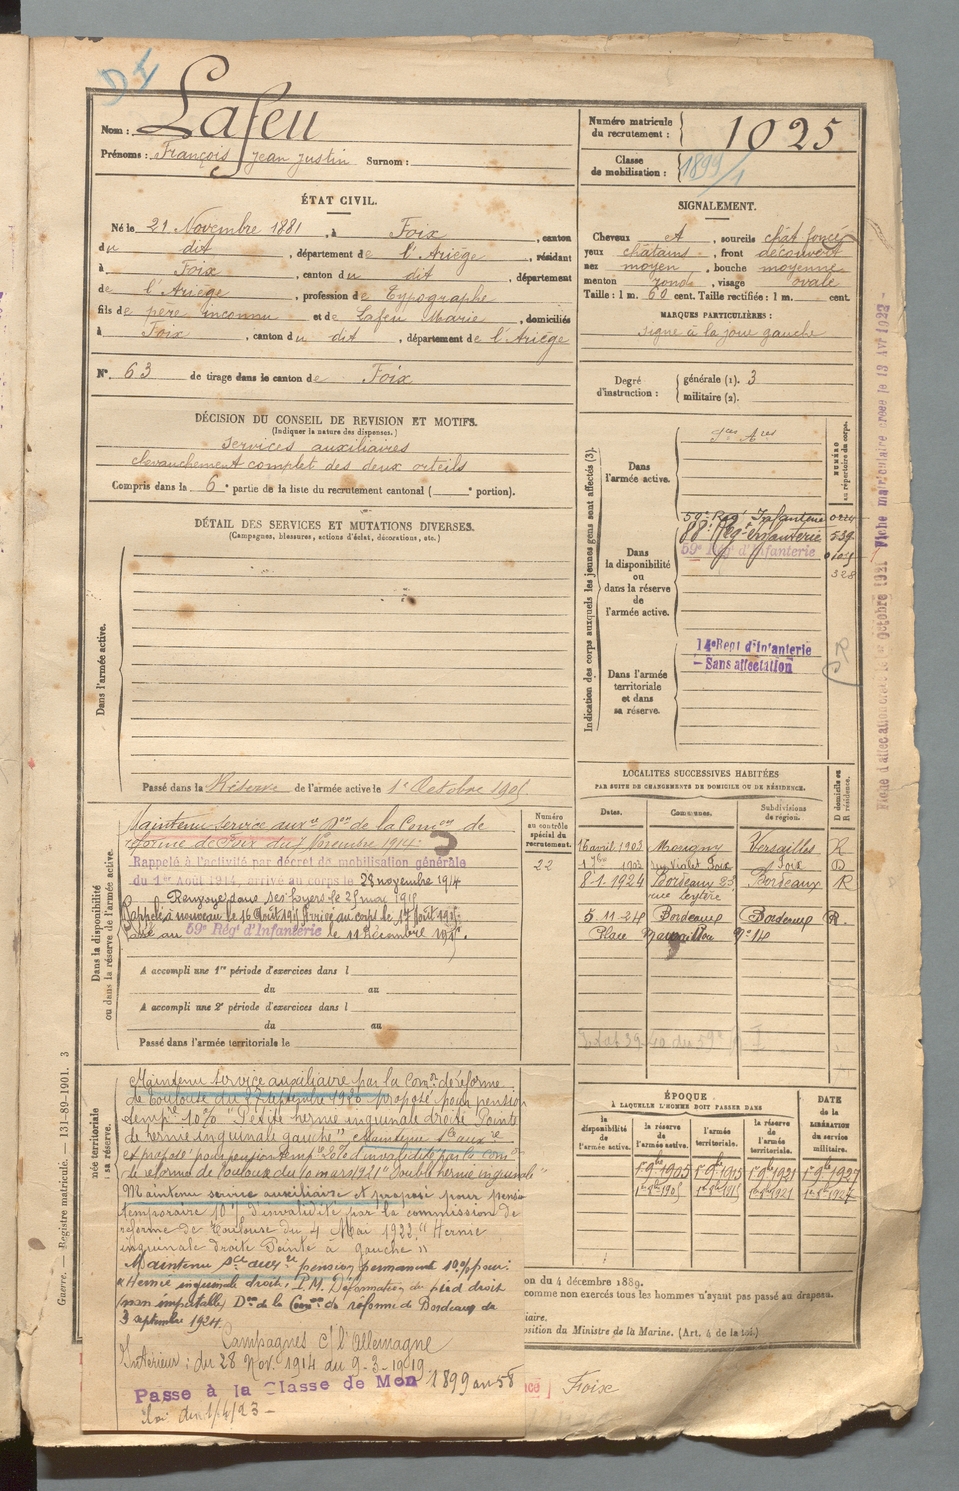 Nom : Lafeu
Prénoms : François Jean Justin Surnom :
Numéro matricule du recrutement : 1025
Classe de mobilisation : 1899/1
ÉTAT CIVIL.
Né le 21 Novembre 1881, à Foix, canton
du dit, département de l'Ariège, résidant
à Foix, canton du dit, département
de l'Ariège, profession de Typographe
fils de père inconnu et de Lafeu Marie, domiciliés
à Foix, canton du dit, département de l'Ariège
N° 63 de tirage dans le canton de Foix
SIGNALEMENT.
Cheveux et, sourcils chat foncé
yeux châtains, front découvert
nez moyen, bouche moyenne
menton rond, visage ovale
Taille : 1 m. 60 cent. Taille rectifiée : 1 m. cent.
MARQUES PARTICULIÈRES :
signe à la joue gauche
Degré d'instruction : générale (1). 3
militaire (2).
DÉCISION DU CONSEIL DE REVISION ET MOTIFS.
(Indiquer la nature des dispenses.)
Services auxiliaires
chevauchement complet des deux orteils
Compris dans la 6e partie de la liste du recrutement cantonal ( e portion).
DÉTAIL DES SERVICES ET MUTATIONS DIVERSES.
(Campagnes, blessures, actions d'éclat, décorations, etc.)
Dans l'armée active.
Passé dans la Réserve de l'armée active le 1er Octobre 1905
Indication des corps auxquels les jeunes gens sont affectés (3).
NUMÉRO au répertoire du corps.
Dans l'armée active.
Dans la disponibilité ou dans la réserve de l'armée active.
59e Régt Infanterie
88e Régt Infanterie 539
59e Rég d'Infanterie
328
Dans l'armée territoriale et dans sa réserve.
14e Regt d'Infanterie
- Sans affectation
R
LOCALITÉS SUCCESSIVES HABITÉES
PAR SUITE DE CHANGEMENTS DE DOMICILE OU DE RÉSIDENCE.
Dates. Communes. Subdivisions de région. D domicile ou R résidence.
16 avril 1903 Morigny Versailles R
1903 rue Violet Foix Foix D
8-1-1924 Bordeaux 25 Bordeaux R
rue
5-11-24 Bordeaux Bordeaux R.
Place N° 14
Dans la disponibilité ou dans la réserve de l'armée active.
Numéro au contrôle spécial du recrutement.
22
Maintenu service auxre Don de la Comon de
réforme de Foix du 7 Novembre 1914.
Rappelé à l'activité par décret de mobilisation générale
du 1er Août 1914, arrivé au corps le 28 novembre 1914
Renvoyé dans ses foyers le 25 mai 1915
Rappelé à nouveau le 16 Août 1915 Arrivé au corps le 17 Août 1915
Passé au 59e Rég d'Infanterie le 11 Décembre 1915
A accompli une 1re période d'exercices dans l
du au
A accompli une 2e période d'exercices dans l
du au
Passé dans l'armée territoriale le
Maintenu service auxiliaire par la Comon de réforme
de Toulouse du 27 septembre 1920 proposé pour pension
tempre 10% "Petite hernie inguinale droite Pointe
de hernie inguinale gauche" Maintenu sce auxre
et proposé pour pension tempre d'invalidité par la Comon
de réforme de Toulouse du 10 mars 1921 "Double hernie inguinale"
Maintenu service auxiliaire et proposé pour pension
temporaire 10% d'invalidité par la commission de
réforme de Toulouse du 4 Mai 1922, "Hernie
inguinale droite Pointe à gauche"
Maintenu sce auxre pension permanente 10% pour:
"Hernie inguinale droite, P.M. Déformation du pied droit
(non imputable) Don de la Comon de réforme de Bordeaux du
3 septembre 1924.
Campagnes c/ l'Allemagne
Intérieur : du 28 Nov. 1914 au 9-3-1919
Passé à la Classe de Mon 1899 art 58
Loi du 1/4/23 -
ÉPOQUE
À LAQUELLE L'HOMME DOIT PASSER DANS
la disponibilité de l'armée active. la réserve de l'armée active. l'armée territoriale. la réserve de l'armée territoriale. DATE de la LIBÉRATION du service militaire.
1er 9bre 1905 1er 9bre 1915 1er 9bre 1921 1er 9bre 1927
on du 4 décembre 1889.
comme non exercés tous les hommes n'ayant pas passé au drapeau.
iaire.
osition du Ministre de la Marine. (Art. 4 de la loi.)
Foix
Guerre. — Registre matricule. — 131-89-1901. 3
Fiche matriculaire créée le 13 Avr 1922 -